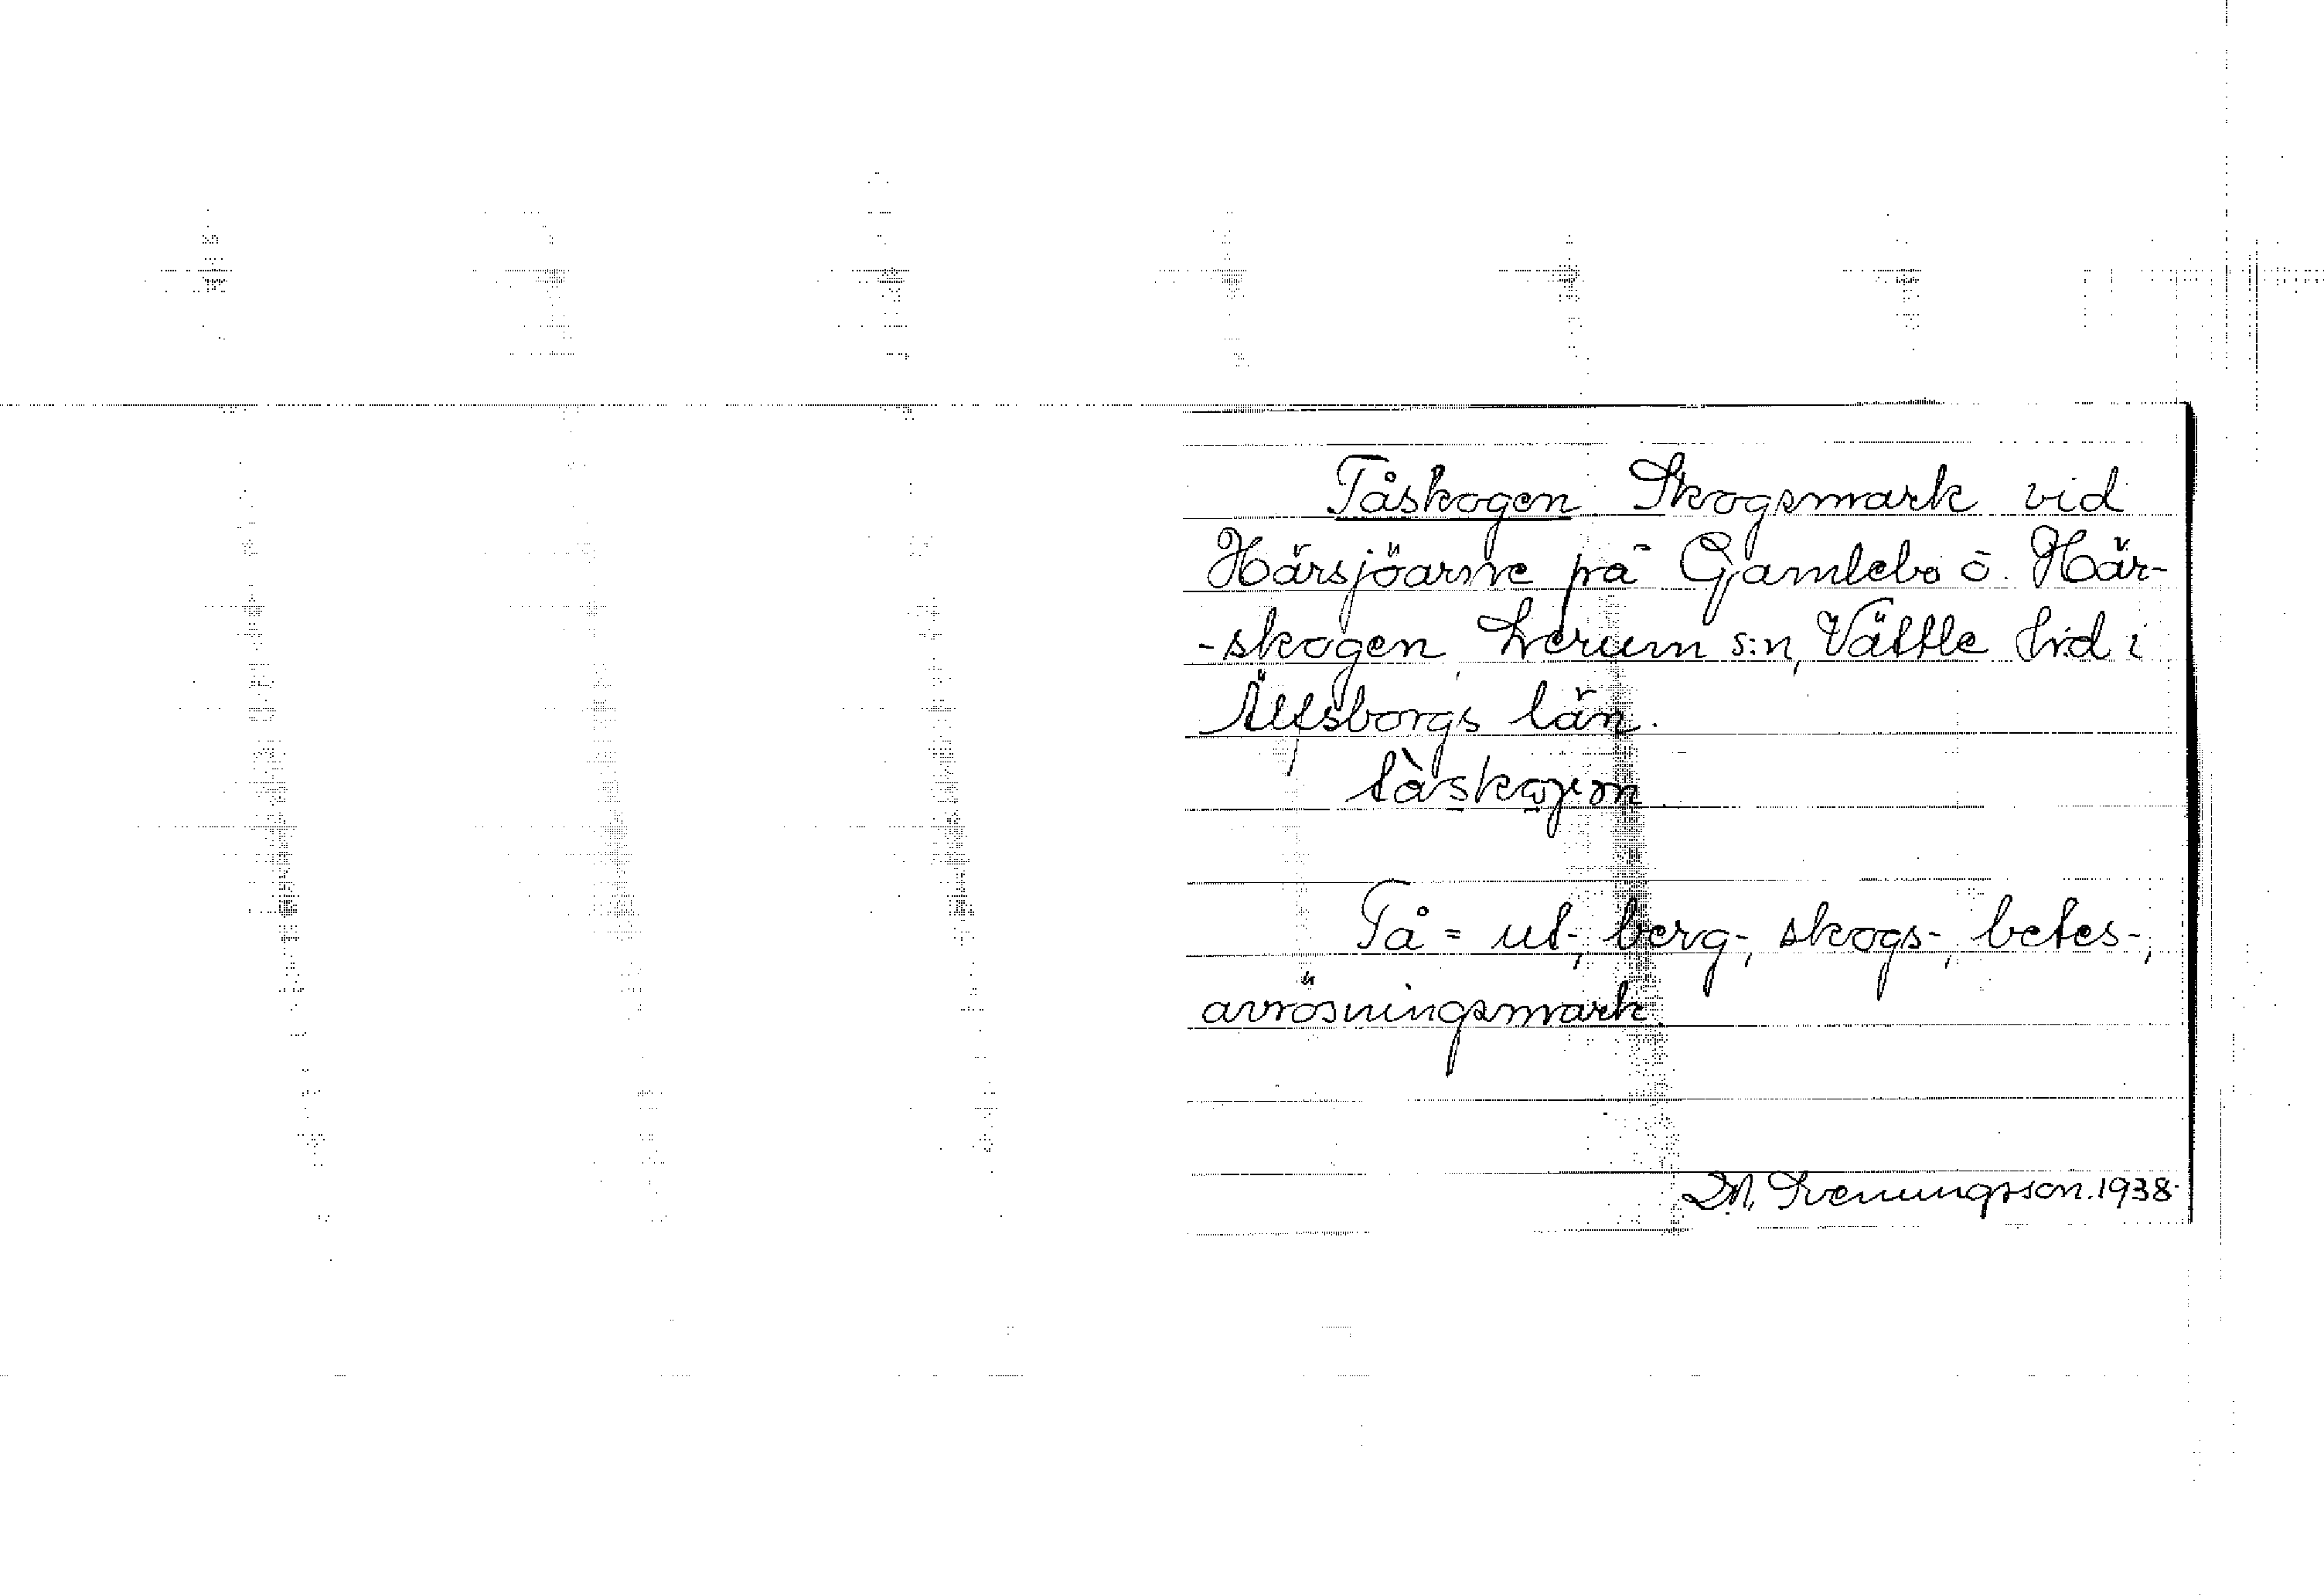 Tåskogen Skogsmark vid
Härsjöarne på Gamlebo ö. Här-
-skogen, Lerum s:n, Vättle hd i
Älfsborgs län.
tåskogen
Tå = ut-, berg-, skogs-, betes-,
avrösningsmark.
Sveningsson. 1938.